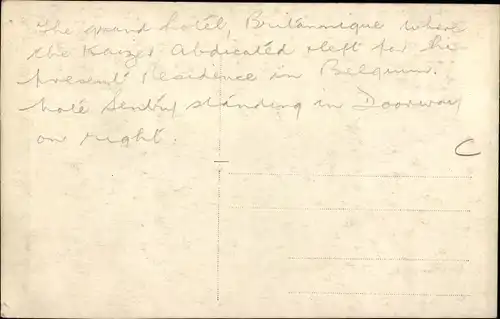 The grand hotel, Britannique where
the Kaizer Abdicated & left for his
present residence in Belguim.
note Sentry standing in Doorway
on right.
C